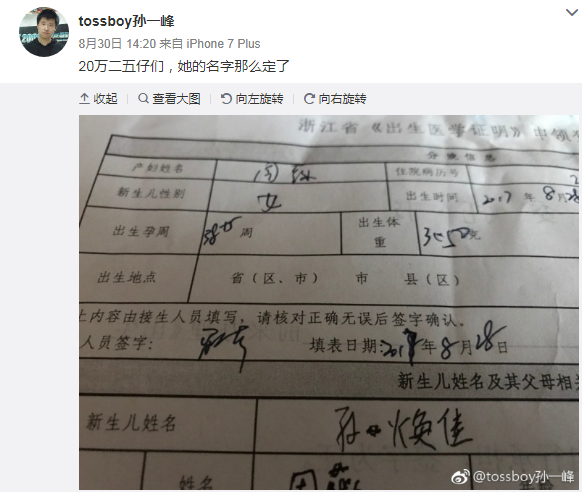 tossboy孙一峰
8月30日 14:20 来自 iPhone 7 Plus
20万二五仔们，她的名字那么定了
收起 查看大图 向左旋转 向右旋转
浙江省《出生医学证明》申领
分娩信息
产妇姓名 住院病历号
新生儿性别 女 出生时间 2017年8月28
出生孕周 周 出生体重 3050克
出生地点 省（区、市） 市 县（区）
上内容由接生人员填写，请核对正确无误后签字确认。
人员签字： 填表日期：2017年8月28日
新生儿姓名及其父母相关
新生儿姓名 孙焕佳
姓名
@tossboy孙一峰